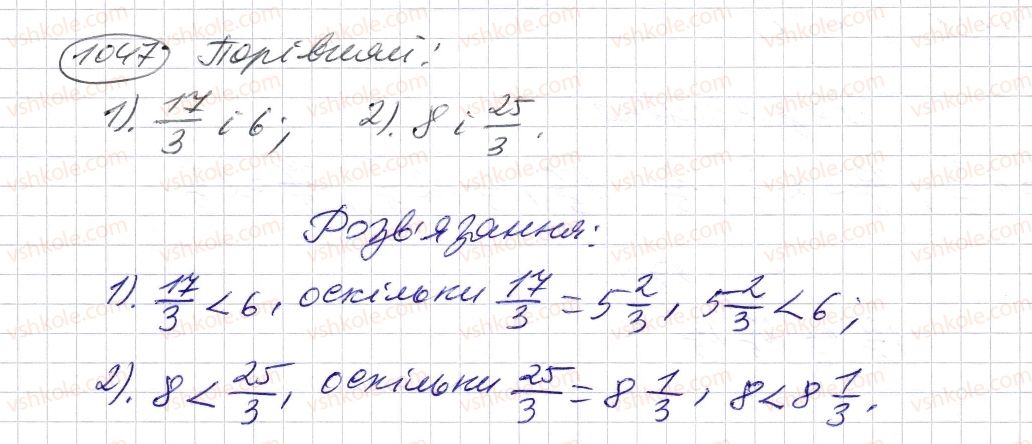 1047. Порівняй:
1). 17/3 і 6; 2). 8 і 25/3.
Розв'язання:
1). 17/3 < 6, оскільки 17/3 = 5 2/3, 5 2/3 < 6;
2). 8 < 25/3, оскільки 25/3 = 8 1/3, 8 < 8 1/3.
vshkole.com